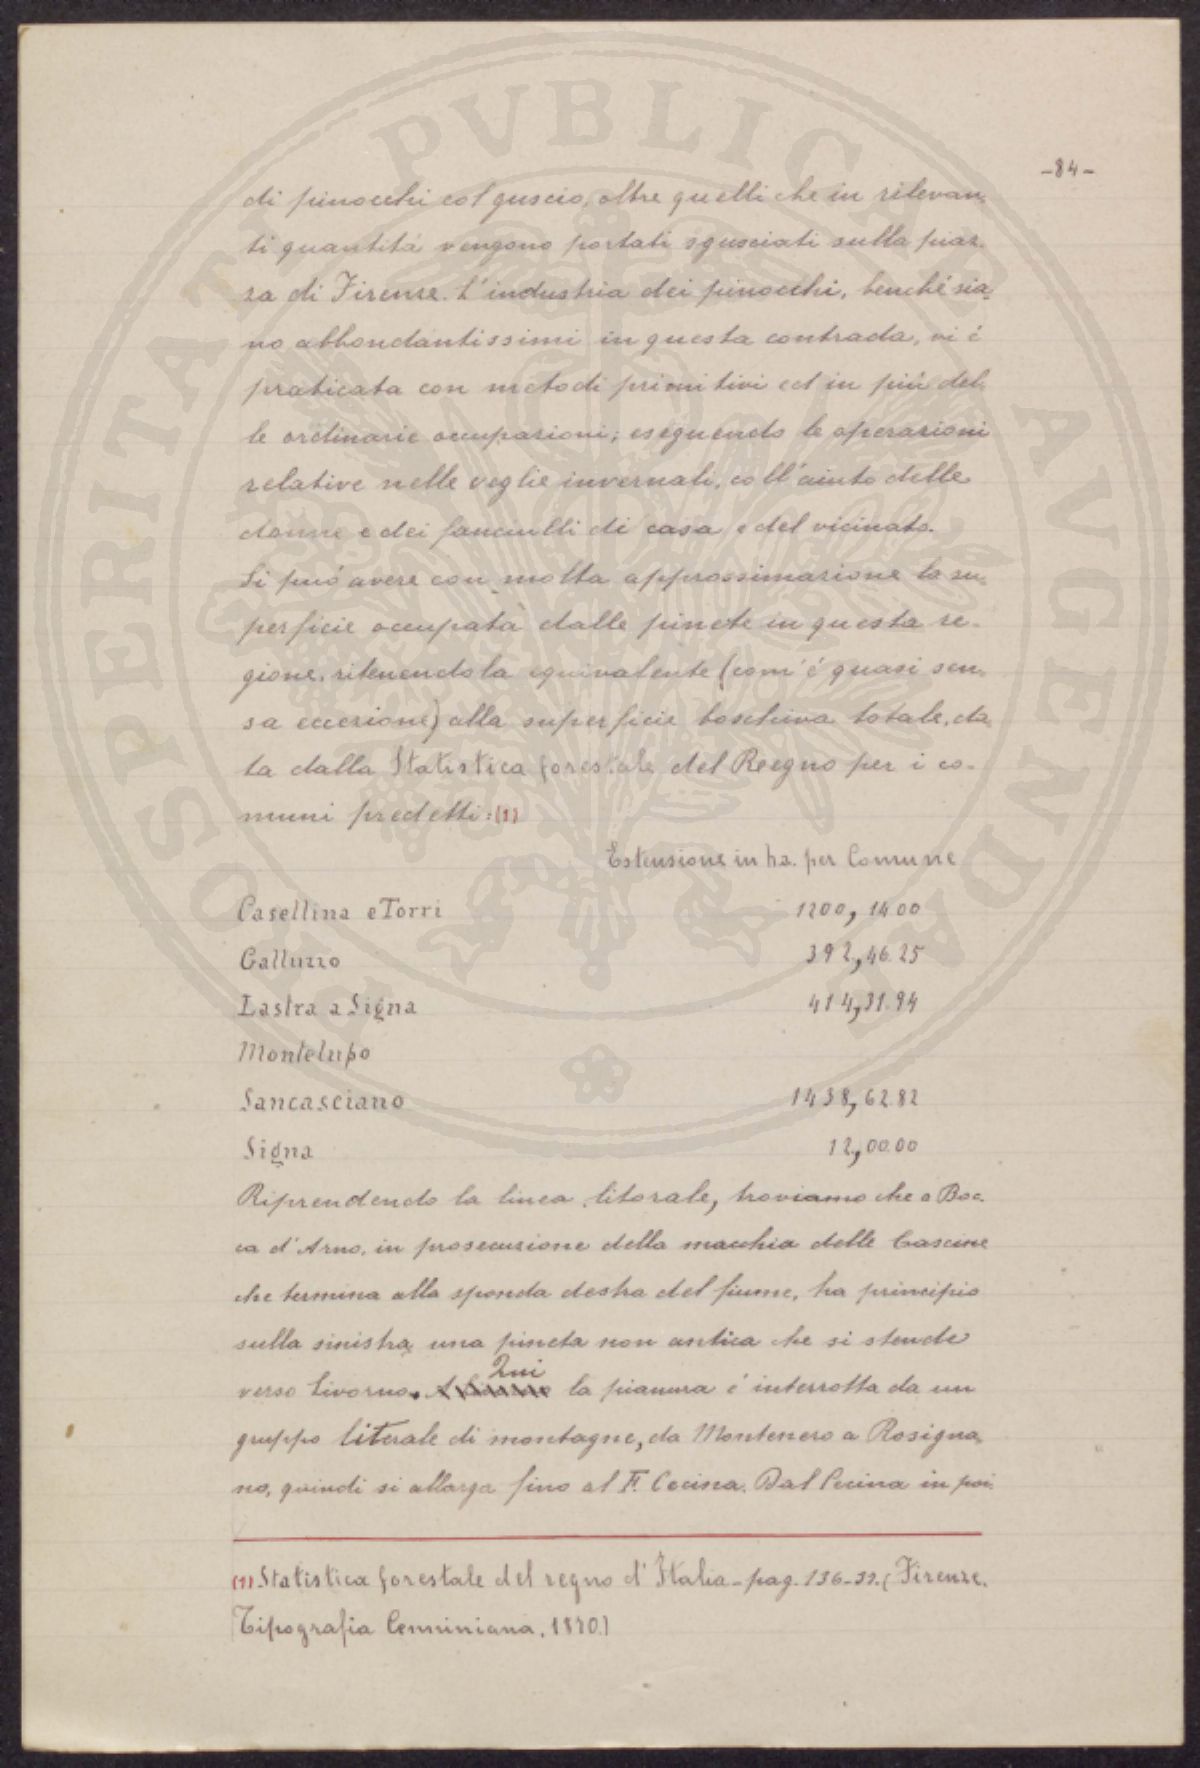 -84-
di pinocchi col guscio, oltre quelli che in rilevan-
ti quantità vengono portati sgusciati sulla piaz-
za di Firenze. L'industria dei pinocchi, benché sia-
no abbondantissimi in questa contrada, vi è
praticata con metodi primitivi ed in più del-
le ordinarie occupazioni; eseguendo le operazioni
relative nelle veglie invernali, coll'aiuto delle
donne e dei fanciulli di casa e del vicinato.
Si può avere con molta approssimazione la su-
perficie occupata dalle pinete in questa re-
gione, ritenendola equivalente (com'è quasi sen-
za eccezione) alla superficie boschiva totale, da-
ta dalla Statistica forestale del Reegno per i co-
muni predetti: (1)
Estensione in ha. per Comune
Casellina e Torri 1200, 14.00
Galluzzo 392,46.25
Lastra a Signa 414,31.94
Montelupo
Sancasciano 1438,62.82
Signa 12,00.00
Riprendendo la linea litorale, troviamo che a Boc-
ca d'Arno, in prosecuzione della macchia delle Cascine
che termina alla sponda destra del fiume, ha principio
sulla sinistra una pineta non antica che si stende
verso Livorno. Qui la pianura è interrotta da un
gruppo literale di montagne, da Montenero a Rosigna-
no, quindi si allarga fino al F. Cecina. Dal Cecina in poi
(1) Statistica forestale del regno d'Italia - pag. 136-39. (Firenze,
Tipografia Cenniniana, 1870)
PROSPERITATI PVBLICAE AVGENDAE